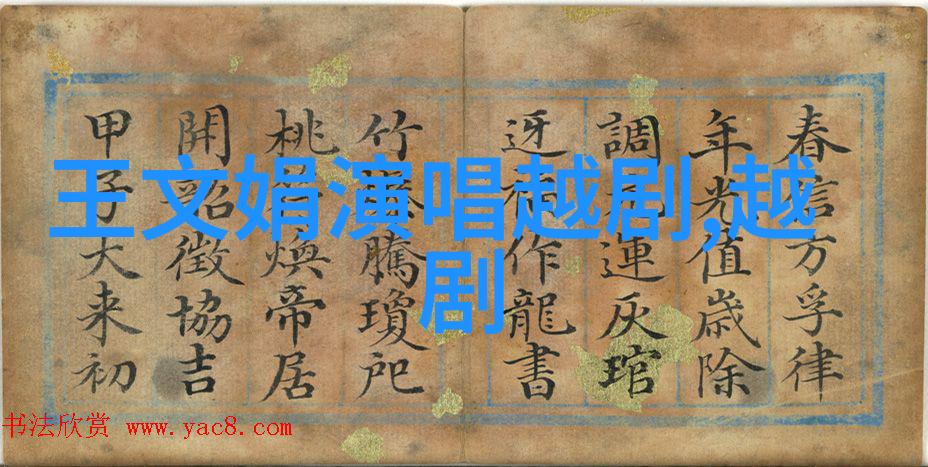 王文娟演唱越剧,越
剧
春信方孚律
年光值歲除
調運灰琯
迓福作龍書
竹騰瓊卮
桃煥帝居
開韶徵協吉
甲子大来初
书法欣赏 www.yac8.com